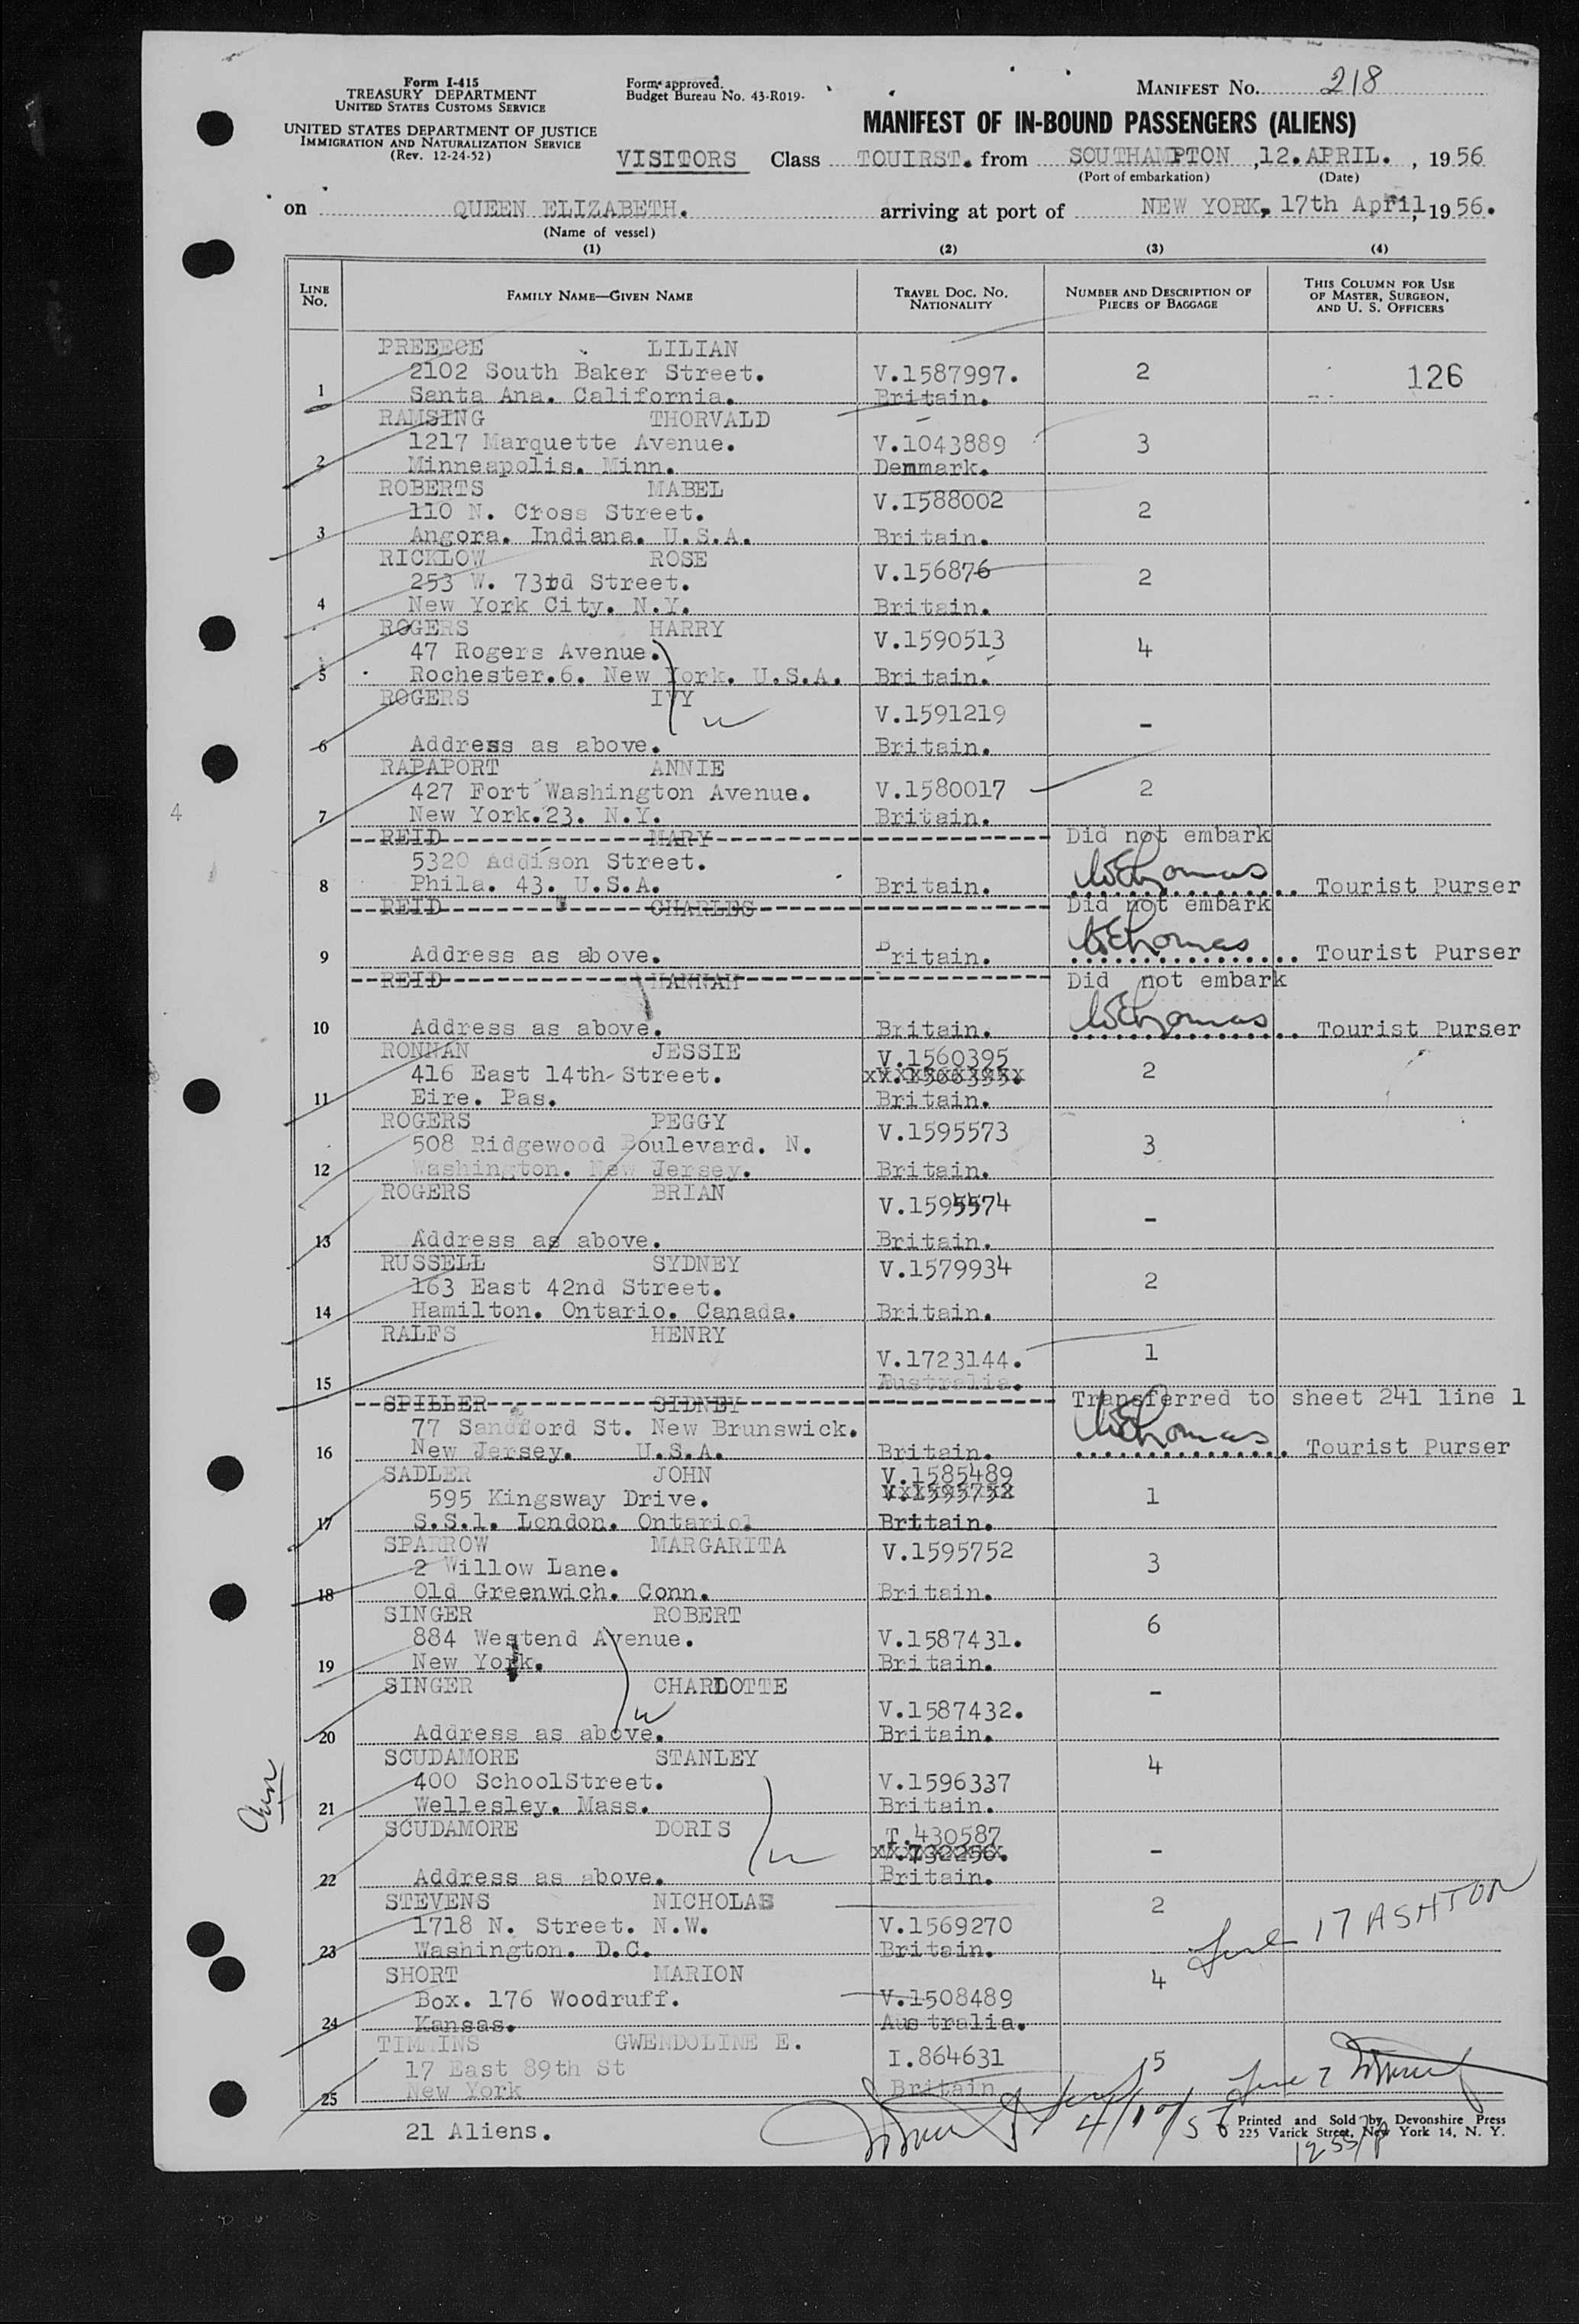 Form I-415
TREASURY DEPARTMENT
UNITED STATES CUSTOMS SERVICE
UNITED STATES DEPARTMENT OF JUSTICE
IMMIGRATION AND NATURALIZATION SERVICE
(Rev. 12-24-52)
Form approved.
Budget Bureau No. 43-R019-
MANIFEST NO. 218
MANIFEST OF IN-BOUND PASSENGERS (ALIENS)
VISITORS Class TOUIRST. from SOUTHAMPTON ,12.APRIL. , 1956
(Port of embarkation) (Date)
on QUEEN ELIZABETH. arriving at port of NEW YORK, 17th April, 1956.
(Name of vessel)
(1) (2) (3) (4)
LINE NO. FAMILY NAME—GIVEN NAME TRAVEL DOC. NO. NATIONALITY NUMBER AND DESCRIPTION OF PIECES OF BAGGAGE THIS COLUMN FOR USE OF MASTER, SURGEON, AND U. S. OFFICERS
PREEECE LILIAN
2102 South Baker Street. V.1587997. 2 126
1 Santa Ana. California. Britain.
RAMSING THORVALD
1217 Marquette Avenue. V.1043889 3
2 Minneapolis. Minn. Denmark.
ROBERTS MABEL V.1588002
110 N. Cross Street. 2
3 Angora. Indiana. U.S.A. Britain.
RICKLOW ROSE V.156876
253 W. 73rd Street. 2
4 New York City. N.Y. Britain.
ROGERS HARRY V.1590513
47 Rogers Avenue. 4
5 Rochester.6. New York. U.S.A. Britain.
ROGERS IVY
V.1591219 -
6 Address as above. Britain.
RAPAPORT ANNIE
427 Fort Washington Avenue. V.1580017 2
7 New York.23. N.Y. Britain.
4
REID MARY Did not embark
5320 Addison Street. WEThomas
8 Phila. 43. U.S.A. Britain. Tourist Purser
REID CHARLES Did not embark
WEThomas
9 Address as above. Britain. Tourist Purser
REID HANNAH Did not embark
WEThomas
10 Address as above. Britain. Tourist Purser
RONNAN JESSIE V.1560395
416 East 14th Street. 2
11 Eire. Pas. Britain.
ROGERS PEGGY V.1595573
508 Ridgewood Boulevard. N. 3
12 Washington. New Jersey. Britain.
ROGERS BRIAN V.1595574
-
13 Address as above. Britain.
RUSSELL SYDNEY V.1579934
163 East 42nd Street. 2
14 Hamilton. Ontario. Canada. Britain.
RALFS HENRY
V.1723144. 1
15 Australia.
SPILLER SIDNEY Transferred to sheet 241 line 1
77 Sandford St. New Brunswick. WEThomas
16 New Jersey. U.S.A. Britain. Tourist Purser
SADLER JOHN V.1585489
595 Kingsway Drive. 1
17 S.S.1. London. Ontario. Brttain.
SPARROW MARGARITA V.1595752
2 Willow Lane. 3
18 Old Greenwich. Conn. Britain.
SINGER ROBERT 6
884 Westend Avenue. V.1587431.
19 New York. Britain.
SINGER CHARLOTTE -
V.1587432.
20 Address as above. Britain.
SCUDAMORE STANLEY 4
400 SchoolStreet. V.1596337
21 Wellesley. Mass. Britain.
SCUDAMORE DORIS T.430587
-
22 Address as above. Britain.
STEVENS NICHOLAS 2
1718 N. Street. N.W. V.1569270
23 Washington. D.C. Britain.
17 ASHTON
SHORT MARION 4
Box. 176 Woodruff. V.1508489
24 Kansas. Australia.
TIMMINS GWENDOLINE E.
17 East 89th St I.864631 5
25 New York Britain
21 Aliens.
4/17/56
Printed and Sold by Devonshire Press
225 Varick Street, New York 14, N. Y.